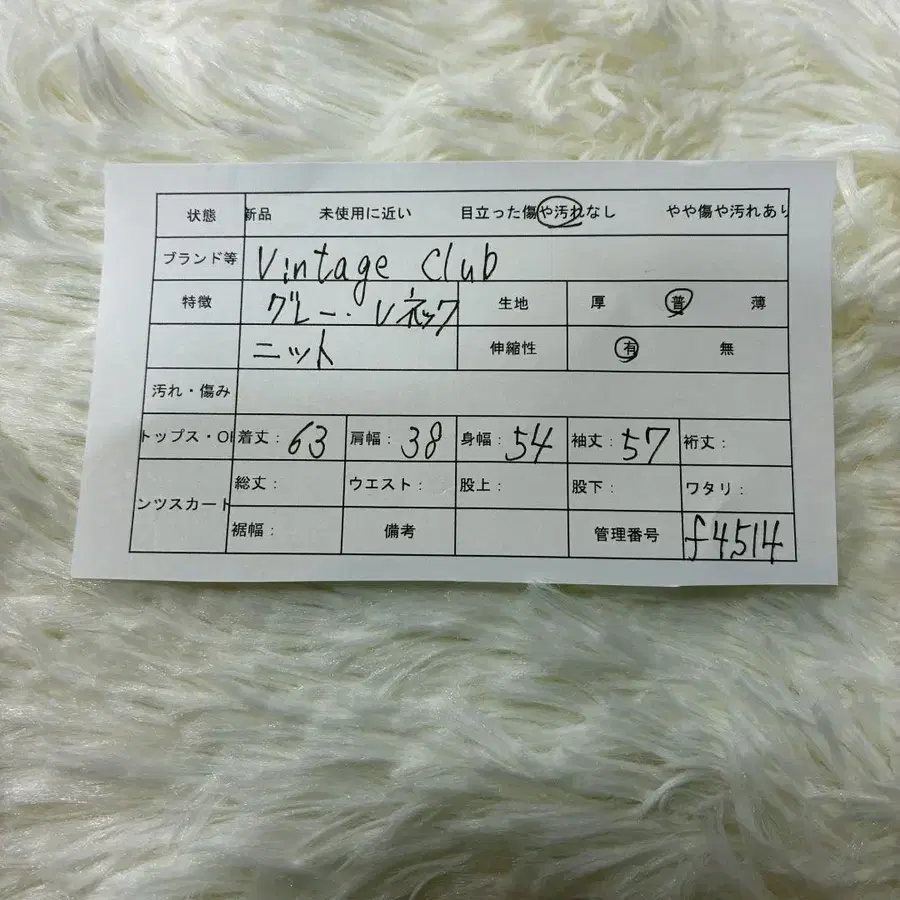 状態 新品 未使用に近い 目立った傷や汚れなし やや傷や汚れあり
ブランド等 Vintage Club
特徴 グレー・Vネック 生地 厚 普 薄
ニット 伸縮性 有 無
汚れ・傷み
トップス・OP 着丈：63 肩幅：38 身幅：54 袖丈：57 裄丈：
ンツスカート 総丈： ウエスト： 股上： 股下： ワタリ：
裾幅： 備考 管理番号 f4514